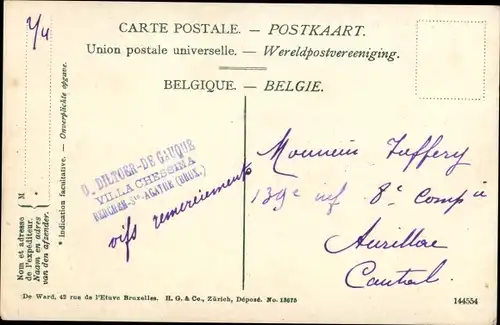 CARTE POSTALE. — POSTKAART.
Union postale universelle. — Wereldpostvereeniging.
BELGIQUE. — BELGIE.
M
Nom et adresse de l'expéditeur.
Naam en adres van den afzender.
* Indication facultative. — Onverplichte opgave.
D. DILTOER-DE GAUQUE
VILLA CHESSINA
BERCHEM-Ste AGATHE (BRUX.)
vifs remerciements
Monsieur
139e inf 8e Compie
Aurillac
Cantal
De Ward, 42 rue de l'Etuve Bruxelles. H. G. & Co., Zürich, Déposé. No. 13675
144554